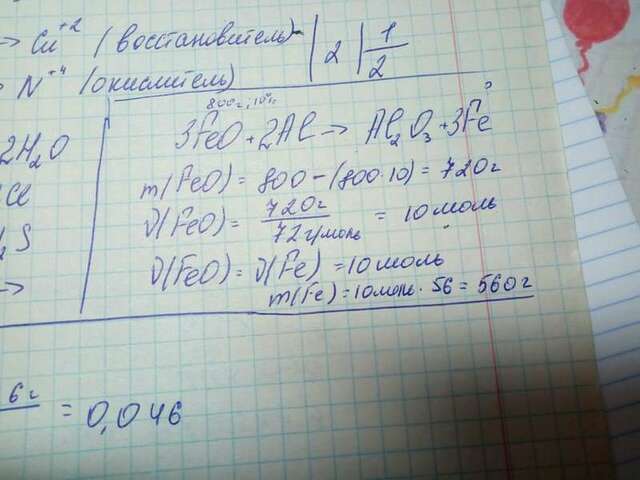 → Cu⁺² (восстановитель) | 2 | 1
N⁺⁴ (окислитель) | 2
800 г, 10%
3FeO + 2Al → Al₂O₃ + 3Fe
?
2H₂O
m(FeO) = 800 - (800·10) = 720г
Cl
ν(FeO) = 720г / 72г/моль = 10 моль
S
ν(FeO) = ν(Fe) = 10 моль
→
m(Fe) = 10моль · 56 = 560 г
6 г
= 0,046